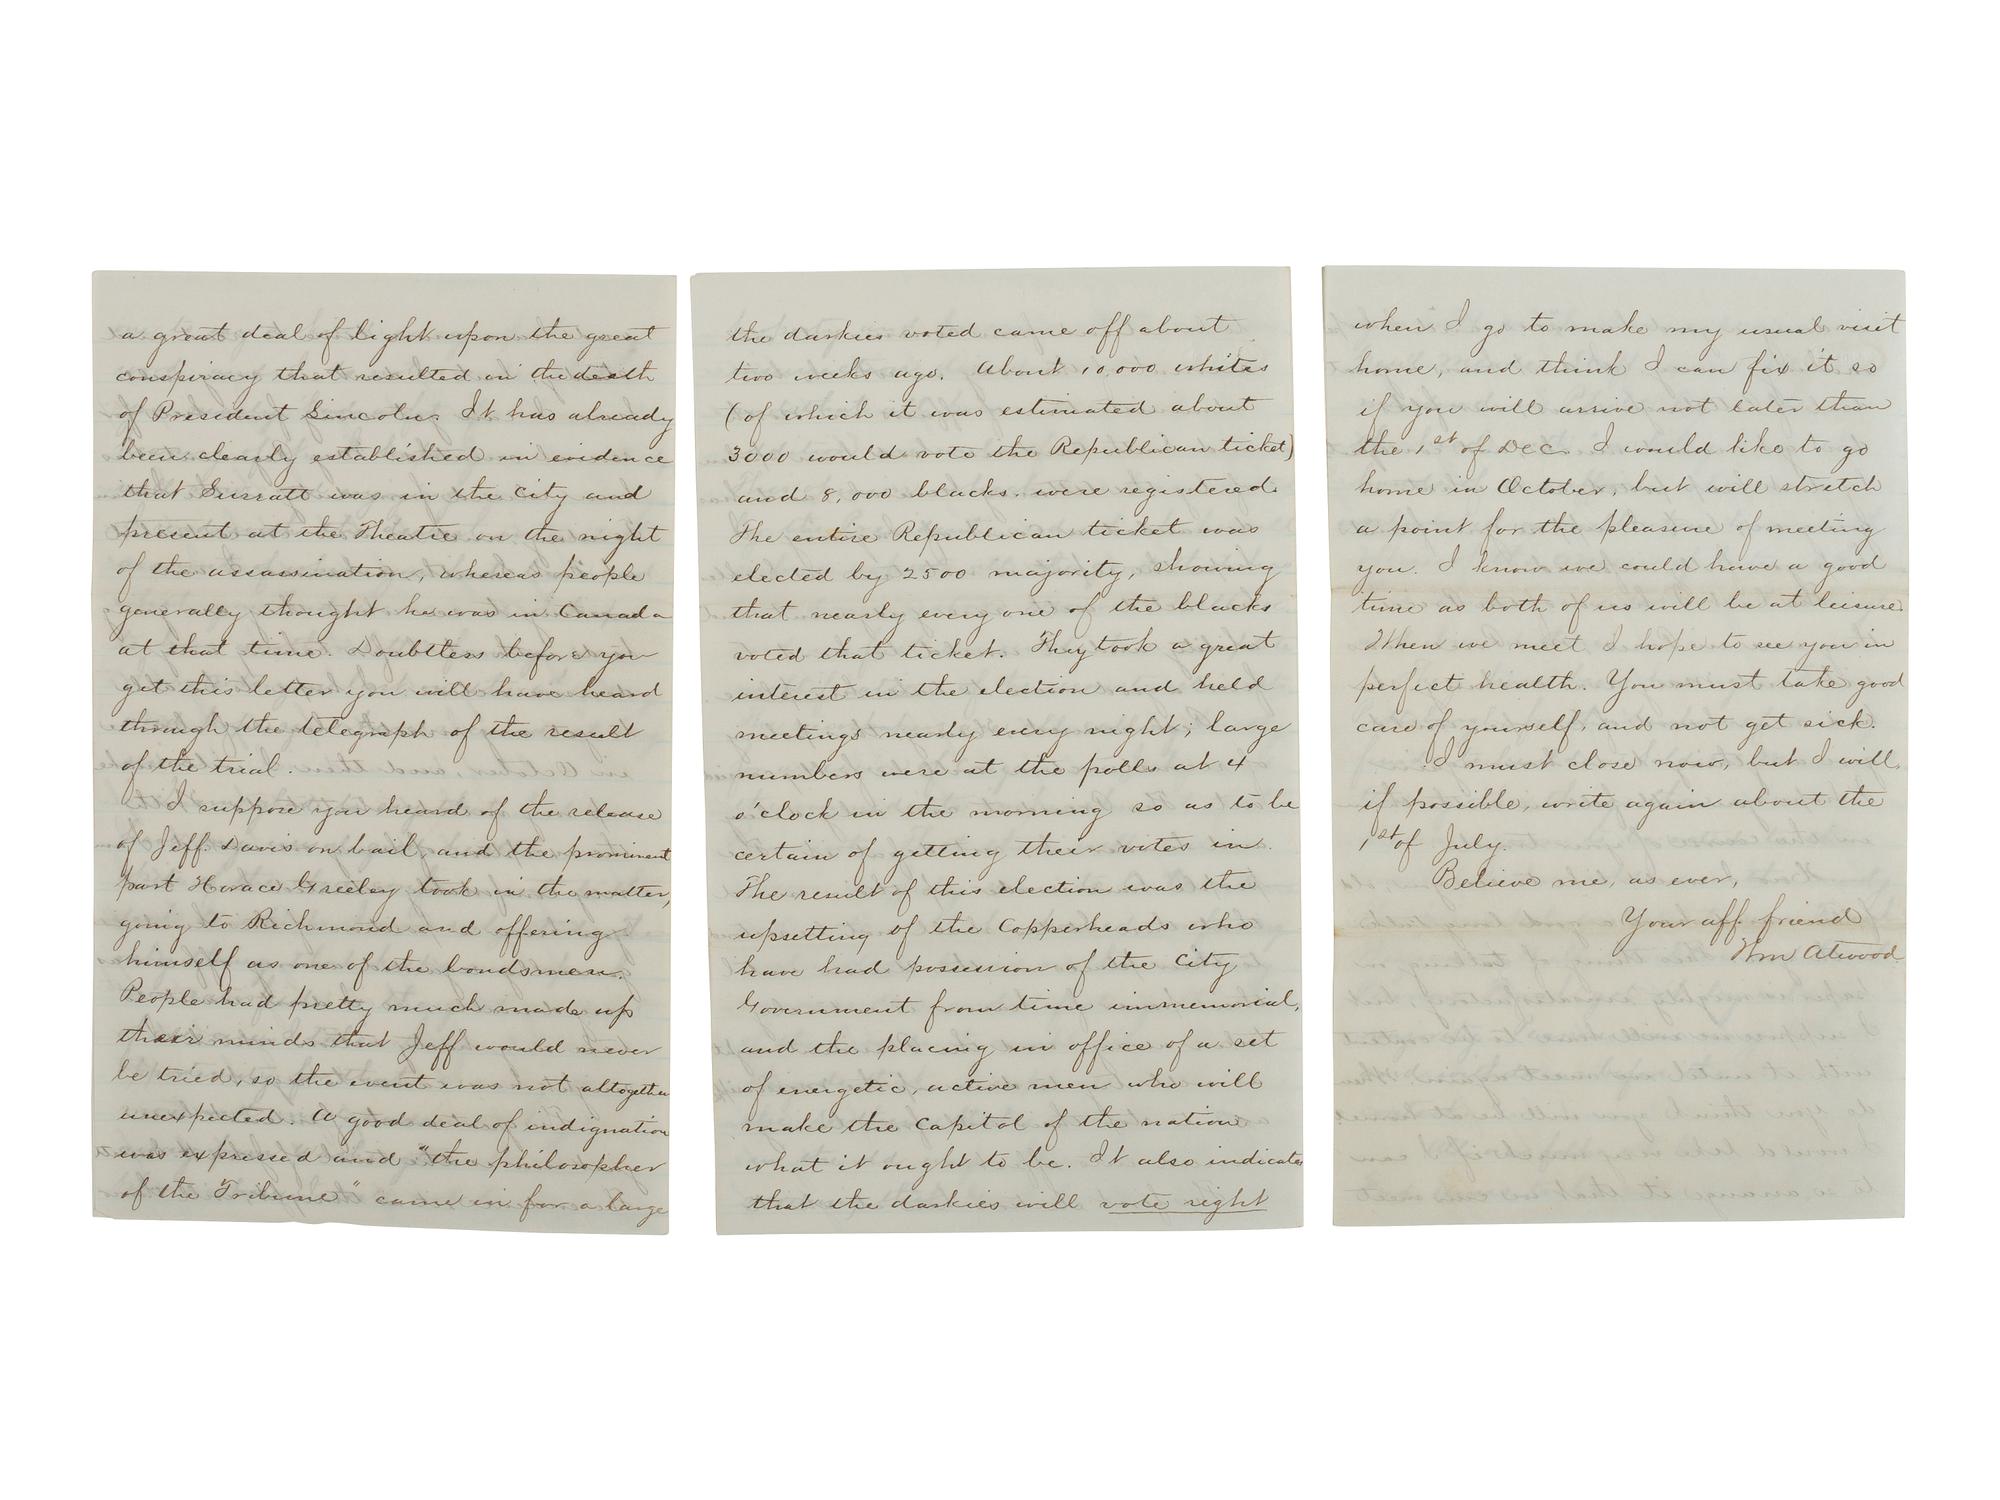 a great deal of light upon the great
conspiracy that resulted in the death
of President Lincoln. It has already
been clearly established in evidence
that Surratt was in the city and
present at the Theatre on the night
of the assassination, whereas people
generally thought he was in Canada
at that time. Doubtless before you
get this letter you will have heard
through the telegraph of the result
of the trial.
I suppose you heard of the release
of Jeff. Davis on bail, and the prominent
part Horace Greeley took in the matter,
going to Richmond and offering
himself as one of the bondsmen.
People had pretty much made up
their minds that Jeff would never
be tried, so the event was not altogether
unexpected. A good deal of indignation
was expressed and "the philosopher
of the Tribune" came in for a large
the darkies voted came off about
two weeks ago. About 10,000 whites
(of which it was estimated about
3000 would vote the Republican ticket)
and 8,000 blacks were registered.
The entire Republican ticket was
elected by 2500 majority, showing
that nearly every one of the blacks
voted that ticket. They took a great
interest in the election and held
meetings nearly every night; large
numbers were at the polls at 4
o'clock in the morning so as to be
certain of getting their votes in.
The result of this election was the
upsetting of the Copperheads who
have had possession of the City
Government from time immemorial,
and the placing in office of a set
of energetic, active men who will
make the Capitol of the nation
what it ought to be. It also indicates
that the darkies will vote right
when I go to make my usual visit
home, and think I can fix it so
if you will arrive not later than
the 1st of Dec. I would like to go
home in October, but will stretch
a point for the pleasure of meeting
you. I know we could have a good
time as both of us will be at leisure.
When we meet I hope to see you in
perfect health. You must take good
care of yourself, and not get sick.
I must close now, but I will,
if possible, write again about the
1st of July.
Believe me, as ever,
Your aff. friend
Wm Atwood